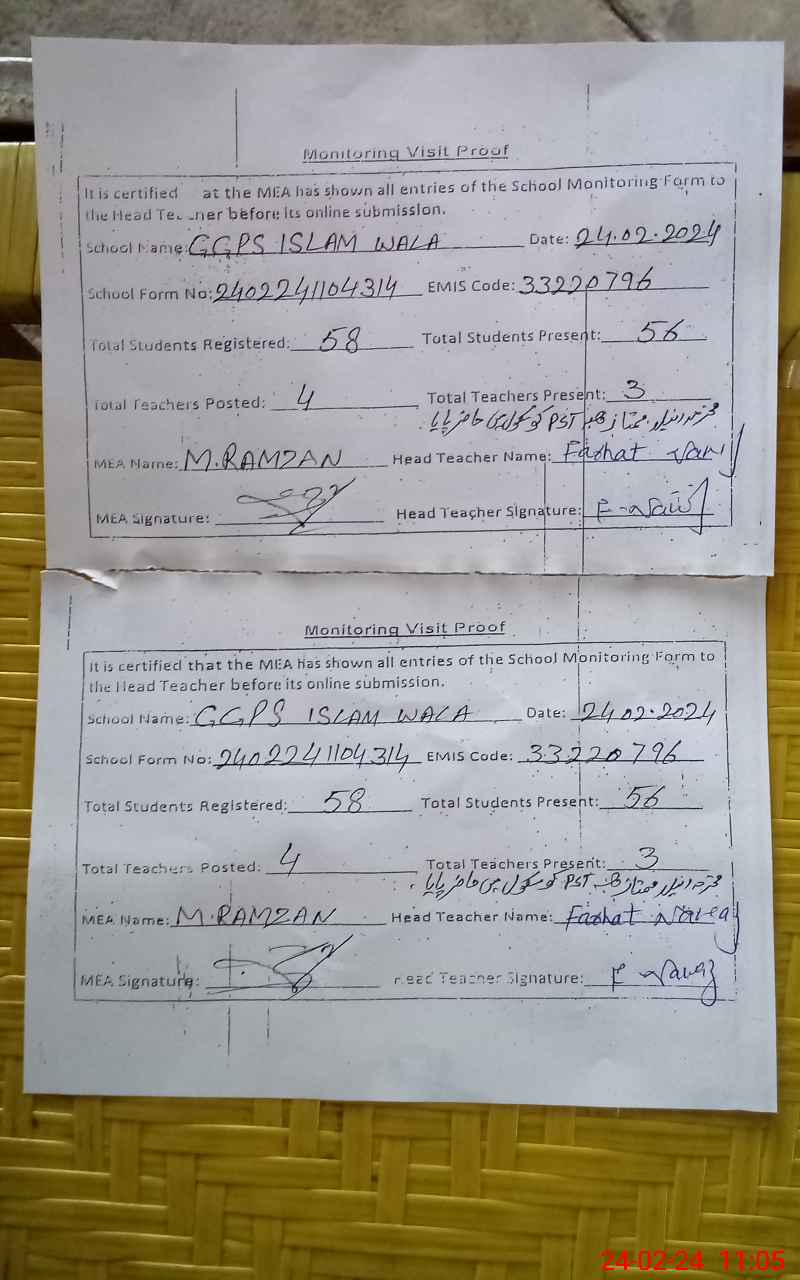 Monitoring Visit Proof
It is certified at the MEA has shown all entries of the School Monitoring Form to
the Head Teacher before its online submission.
School Name: GGPS ISLAM WALA Date: 24.02.2024
School Form No: 2402241104314 EMIS Code: 33220796
Total Students Registered: 58 Total Students Present: 56
Total Teachers Posted: 4 Total Teachers Present: 3
ممتاز PST کو سکول میں حاضر پایا
MEA Name: M.RAMZAN Head Teacher Name: Farhat Nawaz
MEA Signature: Head Teacher Signature: F-Nawaz
Monitoring Visit Proof
It is certified that the MEA has shown all entries of the School Monitoring Form to
the Head Teacher before its online submission.
School Name: GGPS ISLAM WALA Date: 24.02.2024
School Form No: 2402241104314 EMIS Code: 33220796
Total Students Registered: 58 Total Students Present: 56
Total Teachers Posted: 4 Total Teachers Present: 3
ممتاز PST کو سکول میں حاضر پایا
MEA Name: M.RAMZAN Head Teacher Name: Farhat Nawaz
MEA Signature: Head Teacher Signature: F Nawaz
24-02-24 11:05